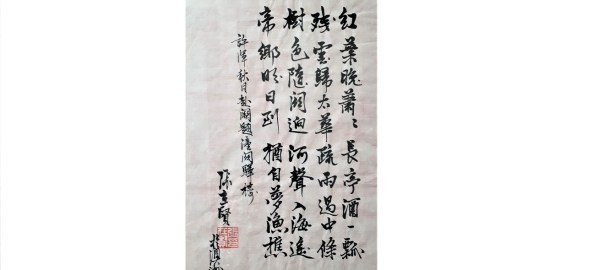 紅葉晚蕭〻長亭酒一瓢
残雲歸太華疏雨過中條
樹色隨關迥河聲入海遥
帝鄉明日到猶自夢漁樵
許渾秋日赴闕題潼關驛樓